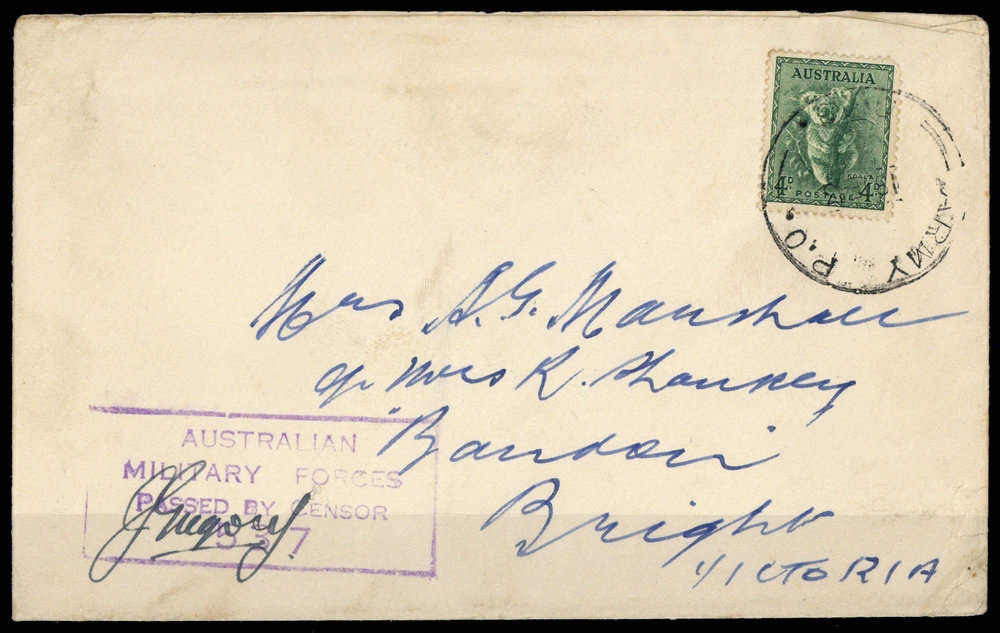 AUSTRALIA
KOALA
4D POSTAGE 4D
ARMY P.O.
Mrs A.G. Marshall
c/- Mrs K.
Bright
VICTORIA
AUSTRALIAN
MILITARY FORCES
PASSED BY CENSOR